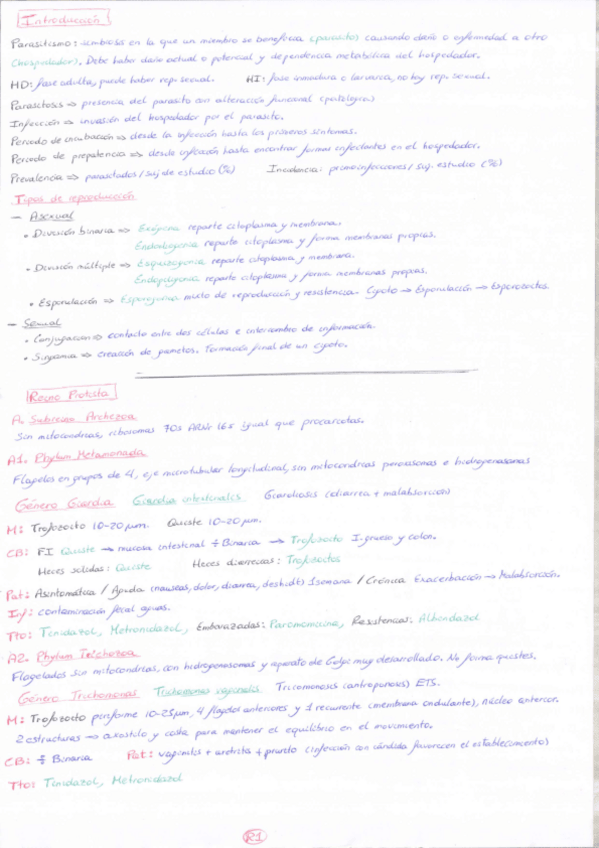 Introducción
Parasitismo: simbiosis en la que un miembro se beneficia (parásito) causando daño o enfermedad a otro
(hospedador). Debe haber daño actual o potencial y dependencia metabólica del hospedador.
HD: fase adulta, puede haber rep. sexual. HI: fase inmadura o larvaria, no hay rep. sexual.
Parasitosis => presencia del parasito con alteración funcional (patológica)
Infección => invasión del hospedador por el parasito.
Periodo de incubación => desde la infección hasta los primeros síntomas.
Periodo de prepatencia => desde infección hasta encontrar formas infectantes en el hospedador.
Prevalencia => parasitados / suj de estudio (%) Incidencia: primoinfecciones / suj. estudio (%)
Tipos de reproducción
- Asexual
• División binaria => Exógena reparte citoplasma y membrana.
Endodiogonia reparte citoplasma y forma membranas propias.
• División múltiple => Esquizogonia reparte citoplasma y membrana.
Endopoligonia reparte citoplasma y forma membranas propias.
• Esporulación => Esporogonia mixto de reproducción y resistencia. Cigoto → Esporulación → Esporozoitos.
- Sexual
• Conjugación => contacto entre dos células e intercambio de información.
• Singamia => creación de gametos. Formación final de un cigoto.
Reino Protista
A. Subreino Archezoa
Sin mitocondrias, ribosomas 70s ARNr 16s igual que procariotas.
A1. Phylum Metamonada
Flagelos en grupos de 4, eje microtubular longitudinal, sin mitocondrias peroxisomas e hidrogenosomas
Género Giardia Giardia intestinalis Giardiosis (diarrea + malabsorción)
M: Trofozoito 10-20 µm. Quiste 10-20 µm.
CB: FI Quiste → mucosa intestinal ÷ Binaria → Trofozoito I. grueso y colon.
Heces solidas: Quiste Heces diarreicas: Trofozoitos
Pat: Asintomática / Aguda (nauseas, dolor, diarrea, deshidt) 1 semana / Crónica Exacerbación → Malabsorción.
Inf: contaminación fecal aguas.
Tto: Tinidazol, Metronidazol, Embarazadas: Paromomicina, Resistencias: Albendazol
A2. Phylum Trichozoa
Flagelados sin mitocondrias, con hidrogenosomas y aparato de Golgi muy desarrollado. No forma quistes.
Género Trichomonas Trichomonas vaginalis Tricomonosis (antroponosis) ETS.
M: Trofozoito piriforme 10-25 µm, 4 flagelos anteriores y 1 recurrente (membrana ondulante), núcleo anterior.
2 estructuras → axostilo y costa para mantener el equilibrio en el movimiento.
CB: ÷ Binaria Pat: vaginitis + uretritis + prurito (infección con cándida favorecen el establecimiento)
Tto: Tinidazol, Metronidazol
R1